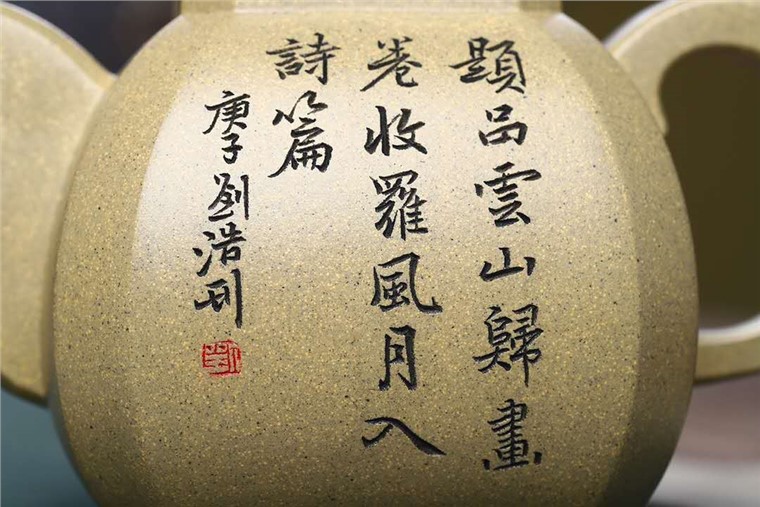 題品雲山歸畫
卷收羅風月入
詩篇
庚子劉浩刊